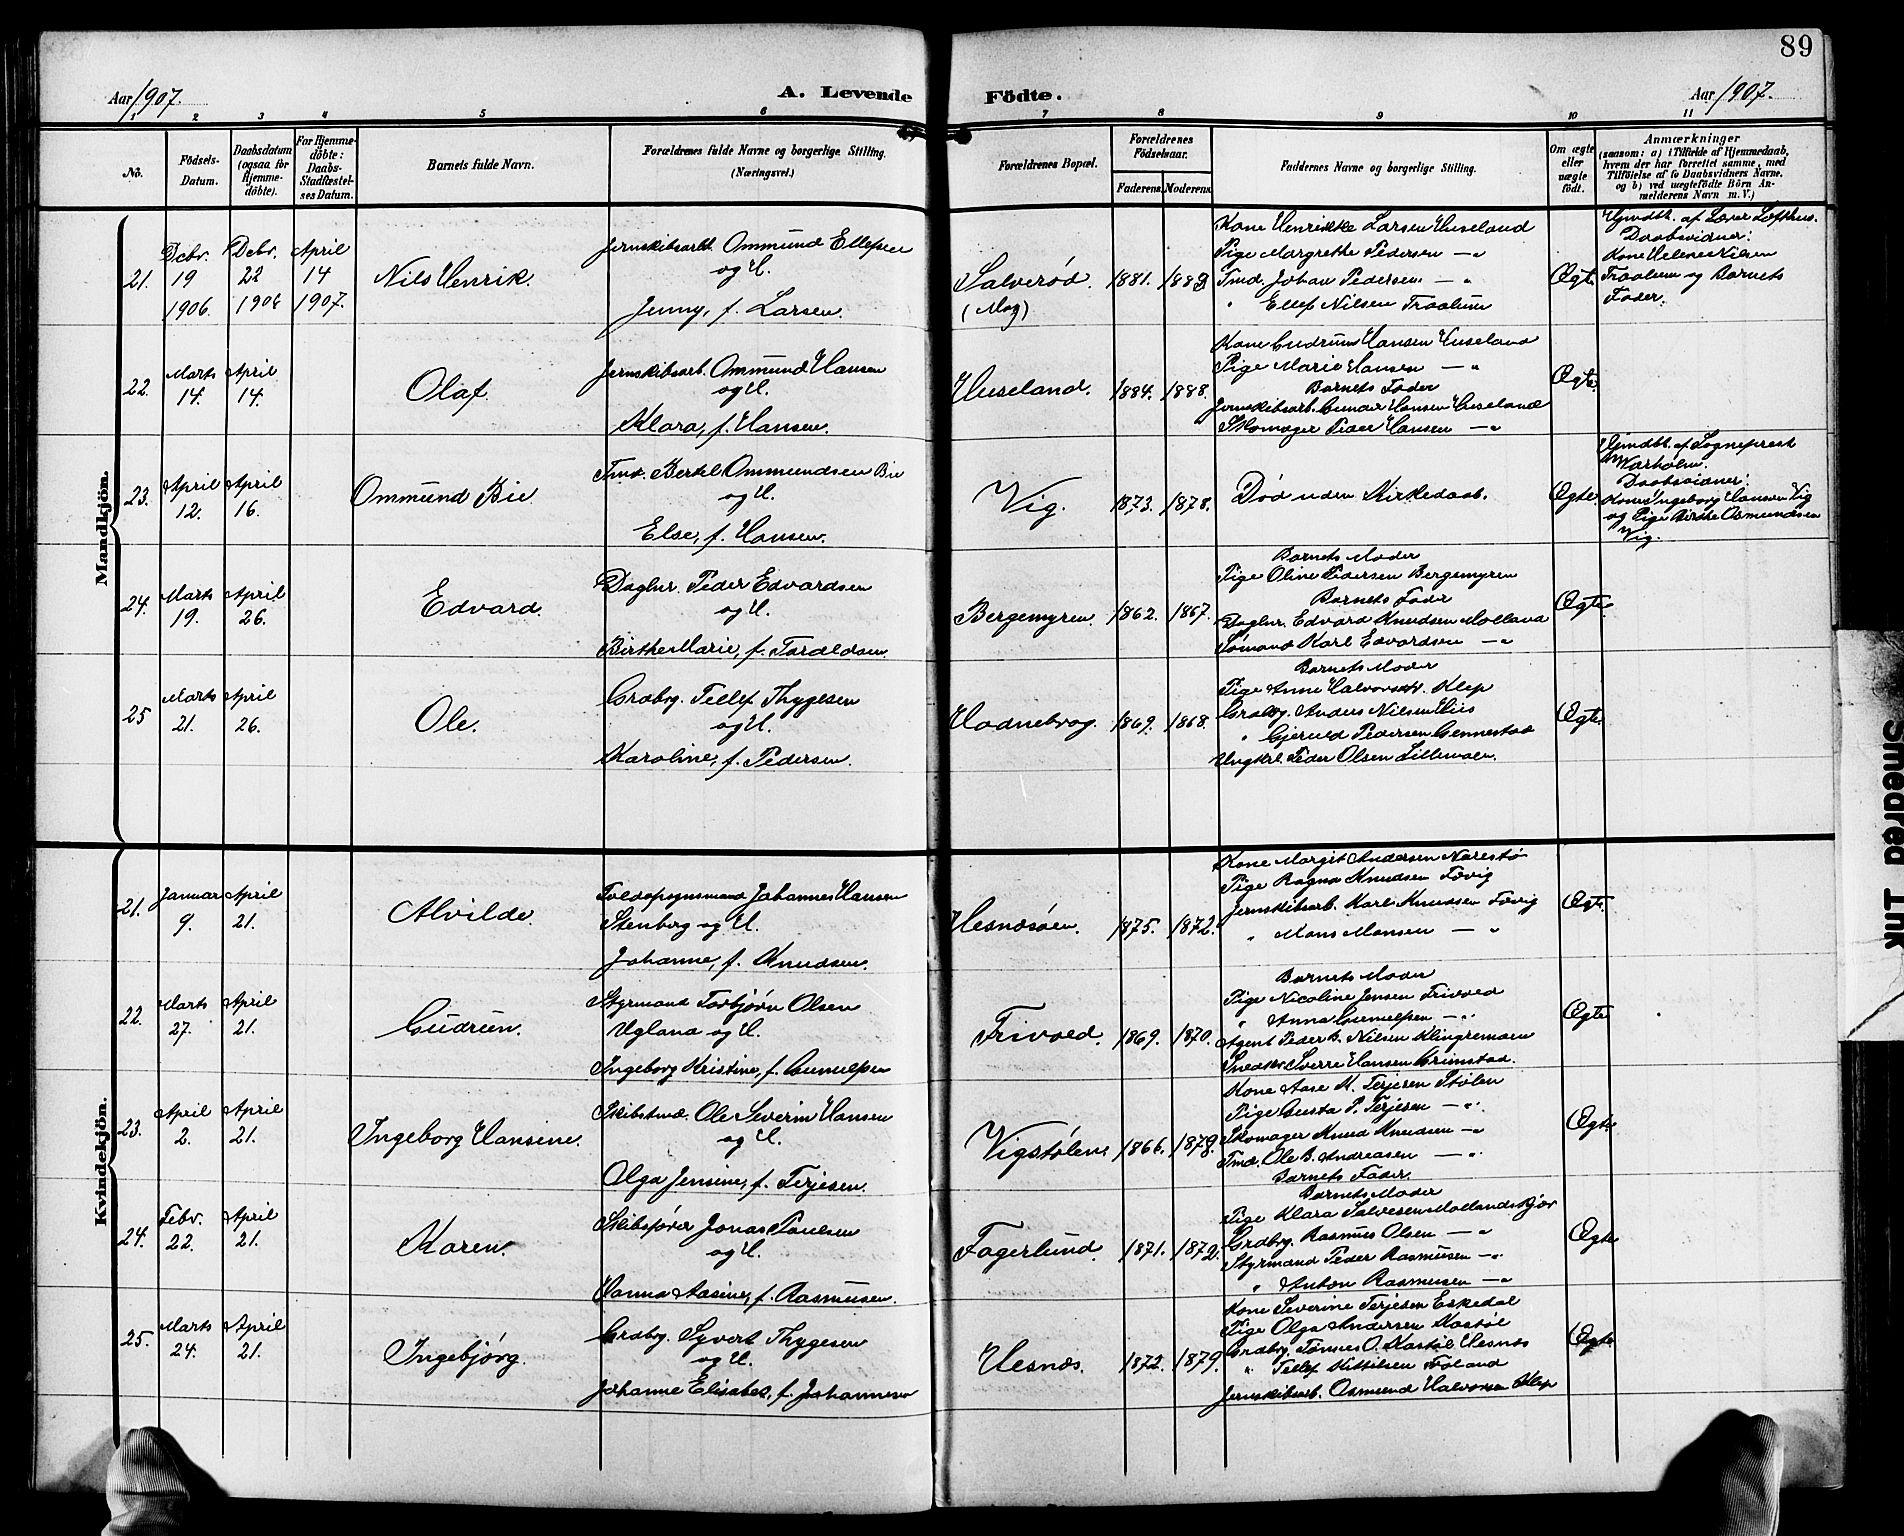 89
Aar 1907.
A. Levende
Födte.
Aar 1907.
1 2 3 4 5 6 7 8 9 10 11
No.
Födsels-
Datum.
Daabsdatum
(ogsaa for
Hjemme-
döbte).
For Hjemme-
döbte:
Daabs-
Stadfæstel-
ses Datum.
Barnets fulde Navn.
Forældrenes fulde Navne og borgerlige Stilling.
(Næringsvei.)
Forældrenes Bopæl.
Forældrenes
Födselsaar.
Faderens.
Moderens.
Faddernes Navne og borgerlige Stilling.
Om ægte
eller
uægte
födt.
Anmærkninger
(saasom: a) i Tilfælde af Hjemmedaab,
hvem der har forrettet samme, med
Tilföielse af to Daabsvidners Navne,
og b) ved uægtefödte Börn An-
melderens Navn m. V.)
Mandkjön.
21.
Dcbr.
19
1906.
Dcbr.
22
1906
April
14
1907.
Nils Henrik.
Jernskibsarb. Ommund Ellefsen
og H.
Jenny, f. Larsen.
Salverød.
(Moy)
1881.
1883
Kone Henrikke Larsen Huseland
Pige Margrethe Pedersen — „
Tmd. Johan Pedersen — „
„ Ellef Nilsen Traalum
Ægte
Hjmdbt. af Lærer Lofthus.
Daabsvidner:
Kone Helene Nilsen
Traalum og Barnets
Fader.
22.
Marts
14.
April
14.
Olaf.
Jernskibsarb. Ommund Hansen
og H.
Klara, f. Hansen.
Huseland.
1884.
1888.
Kone Gudrun Hansen Huseland
Pige Marie Hansen — „
Barnets Fader
Jernskibsarb. Gunder Hansen Huseland
Skomager Peder Hansen — „
Ægte.
23.
April
12.
April
16.
Ommund Bie
Tmd. Bertel Ommundsen Bie
og H.
Else, f. Hansen.
Vig.
1873.
1878.
Død uden Kirkedaab.
Ægte.
Hjmdbt. af Sogneprest
Daabsvidner:
Kone Ingeborg Hansen Vig
og Pige Birthe Osmundsen
Vig.
24.
Marts
19.
April
26.
Edvard.
Daglnr. Peder Edvardsen
og H.
Birthe Marie, f. Taraldsen.
Bergemyren.
1862.
1867.
Barnets Moder
Pige Oline Pedersen Bergemyren
Barnets Fader
Daglnr. Edvard Knudsen Molland
Sømand Karl Edvardsen — „
Ægte.
25
Marts
21.
April
26.
Ole.
Grdbrg. Tellef Thygesen
og H.
Karoline, f. Pedersen.
Hodnebrog.
1869.
1868.
Barnets Moder
Pige Anne Halvorsdt. Klep
Grdbrg. Anders Nilsen Hiis
„ Gjeruld Pedersen Gennestad
Ungkrl. Peder Olsen Lillevolen.
Ægte.
Kvindekjön.
21.
Januar
9.
April
21.
Alvilde.
Toldopsynsmand Johannes Hansen
Stenberg og H.
Johanne, f. Knudsen.
Hesnæsøen.
1875.
1872.
Kone Margit Andersen Narestø
Pige Ragna Knudsen Fævig
Jernskibsarb. Karl Knudsen Fævig
„ Mons Monsen — „
Ægte.
22.
Marts
27.
April
21.
Gudrun.
Styrmand Torbjørn Olsen
Ugland og H.
Ingeborg Kristine, f. Gunulfsen
Frivold.
1869.
1870.
Barnets Moder
Pige Nicoline Jensen Frivold
„ Anna Gunulfsen — „
Agent Peder B. Nilsen Klingremoen
Snedker Sverre Hansen Grimstad.
Ægte
23.
April
2.
April
21.
Ingeborg Hansine.
Skibstmd. Ole Severin Hansen
og H.
Olga Jensine, f. Terjesen.
Vigstølen.
1866.
1878.
Kone Aase M. Terjesen Stølen
Pige Gusta P. Terjesen — „
Skomager Knud Knudsen — „
Tmd. Ole B. Andreasen — „
Barnets Fader.
Ægte.
24.
Febr.
22.
April
21.
Karen.
Skibsfører Jonas Paulsen
og H.
Hanna Aasine, f. Rasmussen.
Fagerlund.
1871.
1872.
Barnets Moder
Pige Klara Salvesen Mollandskjær
Grdbrg. Rasmus Olsen — „
Styrmand Peder Rasmusen — „
„ Anton Rasmusen — „
Ægte.
25.
Marts
24.
April
21.
Ingebjørg.
Grdbrg. Syvert Thygesen
og H.
Johanne Elisabet, f. Johannesen
Hesnæs.
1872.
1879.
Kone Severine Terjesen Eskedal
Pige Olga Andersen Kastøl
Grdbrg. Tønnes O. Kastøl Hesnæs
„ Tellef Kittilsen Føland
Jernskibsarb. Osmund Halvorsen Klep
Ægte.
Smedred Ink